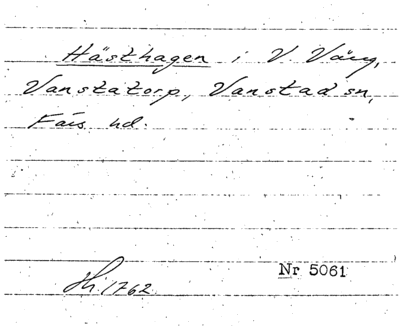 Hästhagen i V. Väng,
Vanstatorp, Vanstad sn,
Färs hd.
Nr 5061
Hi. 1762